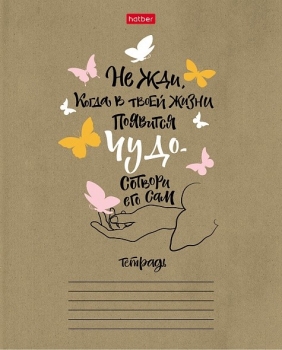 hatber
Не жди,
Когда в твоей жизни
Появится
чудо-
сотвори
его сам
тетрадь